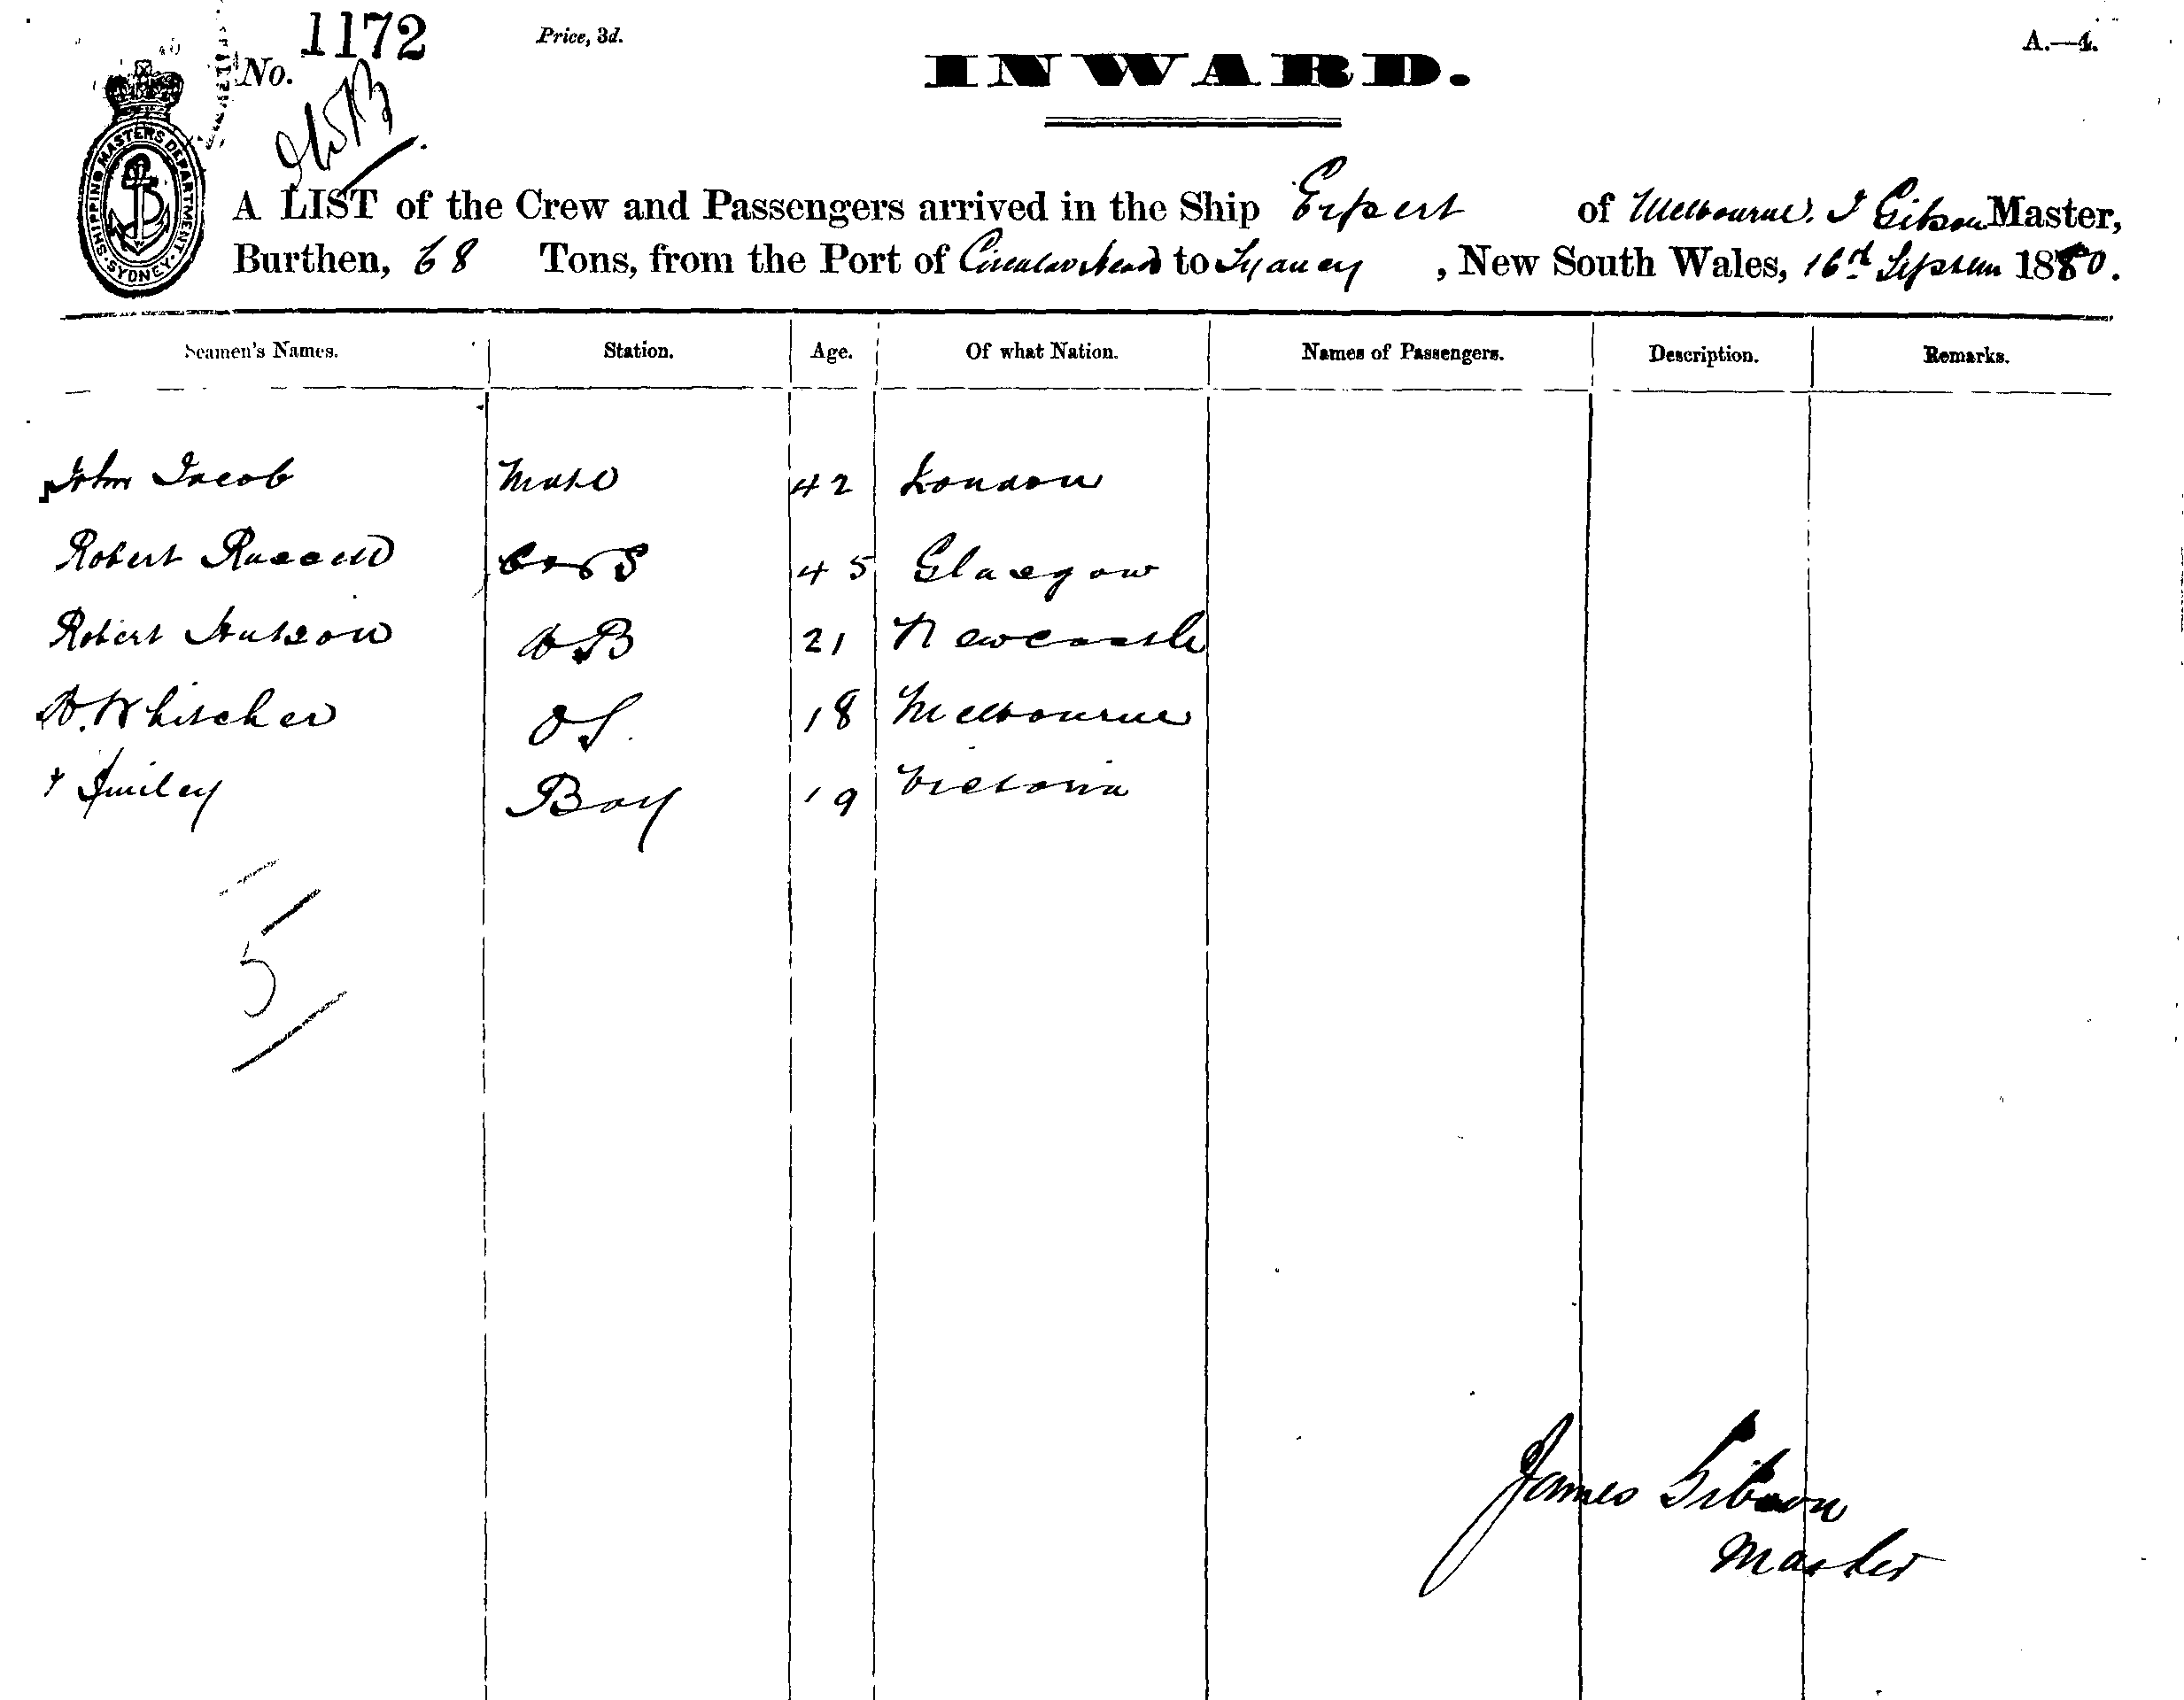 No. 1172
Price, 3d.
A.—4.
INWARD.
SHIPPING MASTERS DEPARTMENT · SYDNEY ·
A LIST of the Crew and Passengers arrived in the Ship Expert of Melbourne. J Gibson Master,
Burthen, 68 Tons, from the Port of Circular Head to Sydney, New South Wales, 16th Septem 1880.
Seamen's Names. Station. Age. Of what Nation. Names of Passengers. Description. Remarks.
John Jacob Mate 42 London
Robert Russell 45 Glasgow
Robert AB 21 Newcastle
Whitcher OS. 18 Melbourne
Smiley Boy 19 Victoria
5
James Gibson
Master